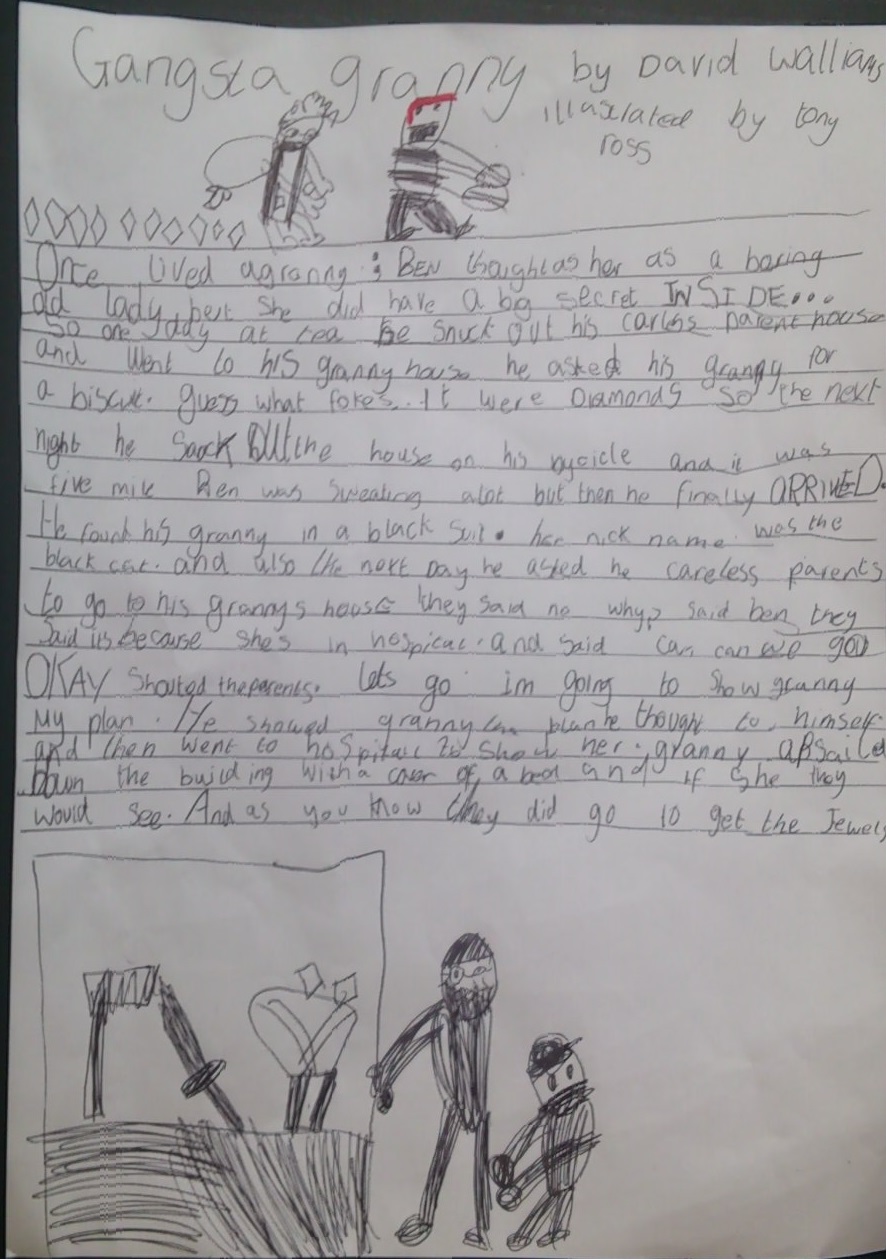 Gangsta granny by David Walliams
illustrated by tony
ross
Once lived a granny ; BEN thaught as her as a boring
old lady, but she did have a big secret INSIDE...
So one day at tea he snuck out his carless parent house
and went to his granny house he asked his granny for
a biscuit. guess what fokes. It were Diamonds So the next
night he snock out the house on his bycicle and it was
five mile Ben was sweating alot but then he finally ARRIVED.
He found his granny in a black suit. her nick name was the
black cat. and also the next Day he asked he careless parents
to go to his grannys house they said no why? said ben, they
said its because she's in hospital. and said can can we go
OKAY shouted the parents. lets go im going to show granny
My plan. He showed granny plan he thought to himself.
and then went to hospital to show her. granny absailed
Down the building with a cover of a bed and if she they
would see. And as you know they did go to get the Jewels